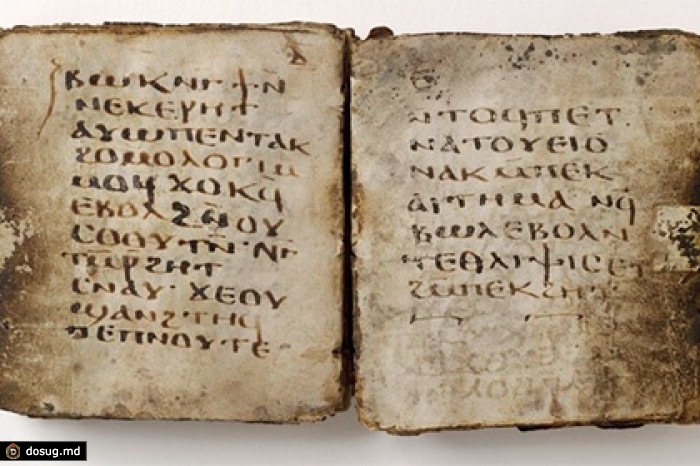 ⲃⲱⲕⲛⲅϯⲛ̄
ⲛⲉⲕⲉⲣⲏⲧ
ⲁⲩⲱⲡⲉⲛⲧⲁⲕ
ϩⲟⲙⲟⲗⲟⲅⲓⲙ
ⲙⲟϥ ϫⲟⲕϥ
ⲉⲃⲟⲗϩⲛ̄ⲟⲩ
ⲥⲟⲟⲩⲧⲛ̄·ⲛⲅ̄
ⲧⲙ̄ⲣϩⲏⲧ
ⲥⲛⲁⲩ·ϫⲉⲟⲩ
ϣⲁⲛϩⲧⲏϥ
ⲡⲉⲡⲛⲟⲩⲧⲉ
ⲉ̄
ⲛⲧⲟϥⲡⲉⲧ
ⲛⲁⲧⲟⲩⲉⲓⲟ
ⲛⲁⲕⲙ̄ⲡⲉⲕ
ⲁⲓⲧⲏⲙⲁ ⲛϥ̄
ⲃⲱⲗⲉⲃⲟⲗⲛ̄
ⲧⲉⲑⲗⲓⲯⲓⲥⲉⲧ
ϩⲙ̄ⲡⲉⲕϩⲏⲧ
dosug.md